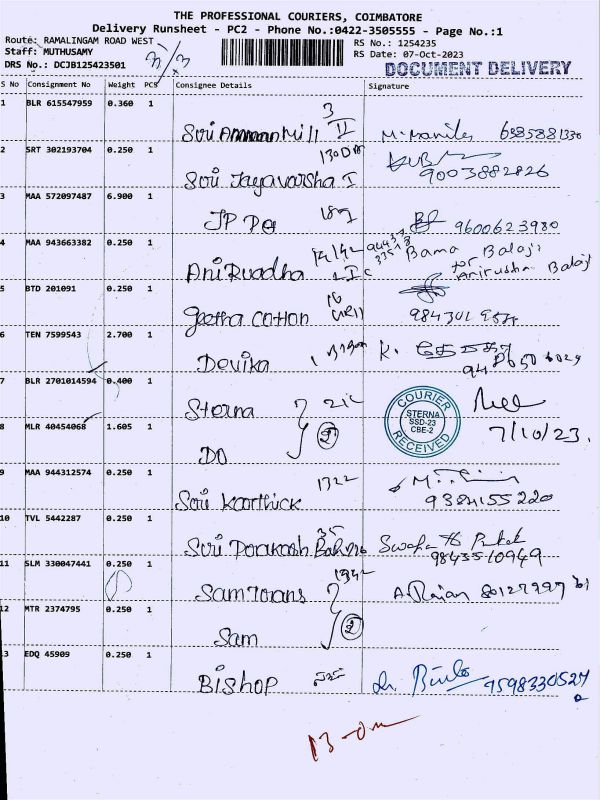 THE PROFESSIONAL COURIERS, COIMBATORE
Delivery Runsheet - PC2 - Phone No.:0422-3505555 - Page No.:1
Route: RAMALINGAM ROAD WEST
RS No.: 1254235
Staff: MUTHUSAMY
RS Date: 07-Oct-2023
DRS No.: DCJB125423501
DOCUMENT DELIVERY
S No Consignment No Weight PCS Consignee Details Signature
1 BLR 615547959 0.360 1
Sri Amman Mill II 3
2 SRT 302193704 0.250 1
Sri Jayavarsha I
9003882826
3 MAA 572097487 6.900 1
JP
9600623980
4 MAA 943663382 0.250 1
Bama Balaji
for
Aniruadha
Anirudha Balaji
5 BTD 201091 0.250 1
Geetha Cotton 16
6 TEN 7599543 2.700 1
Devika
K.
7 BLR 2701014594 0.400 1
Sterna 212
COURIER
STERNA
SSD-23
CBE-2
RECEIVED
7/10/23.
8 MLR 40454068 1.605 1
DO 2
9 MAA 944312574 0.250 1
Sri Karthick 1322
9384155220
10 TVL 5442287 0.250 1
Sri Porakash 35
9843510949
11 SLM 330047441 0.250 1
Samtorans 1342
A. Rajan
12 MTR 2374795 0.250 1
Sam 2
13 EDQ 45909 0.250 1
Bishop
9598330527